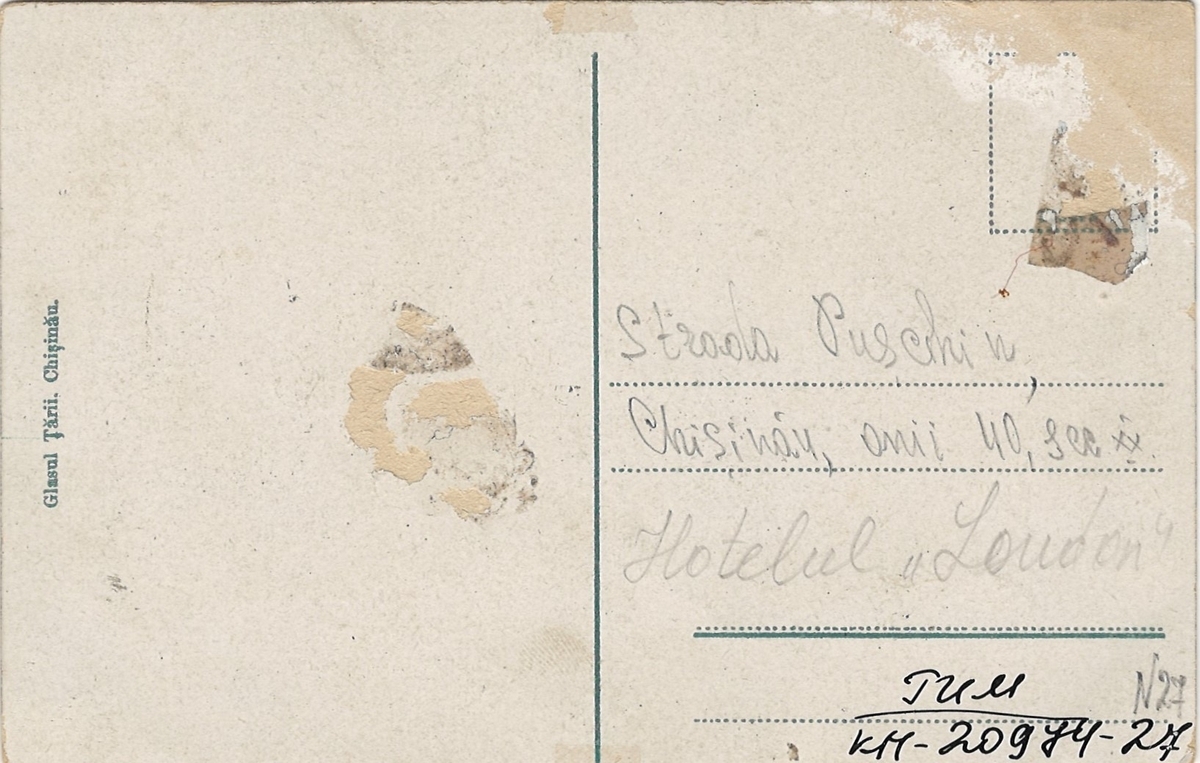 Glasul Țării. Chișinău.
Strada Pușchin,
Chișinău, anii 40, sec XX.
Hotelul „London"
N27
ГИМ
КП-20974-27